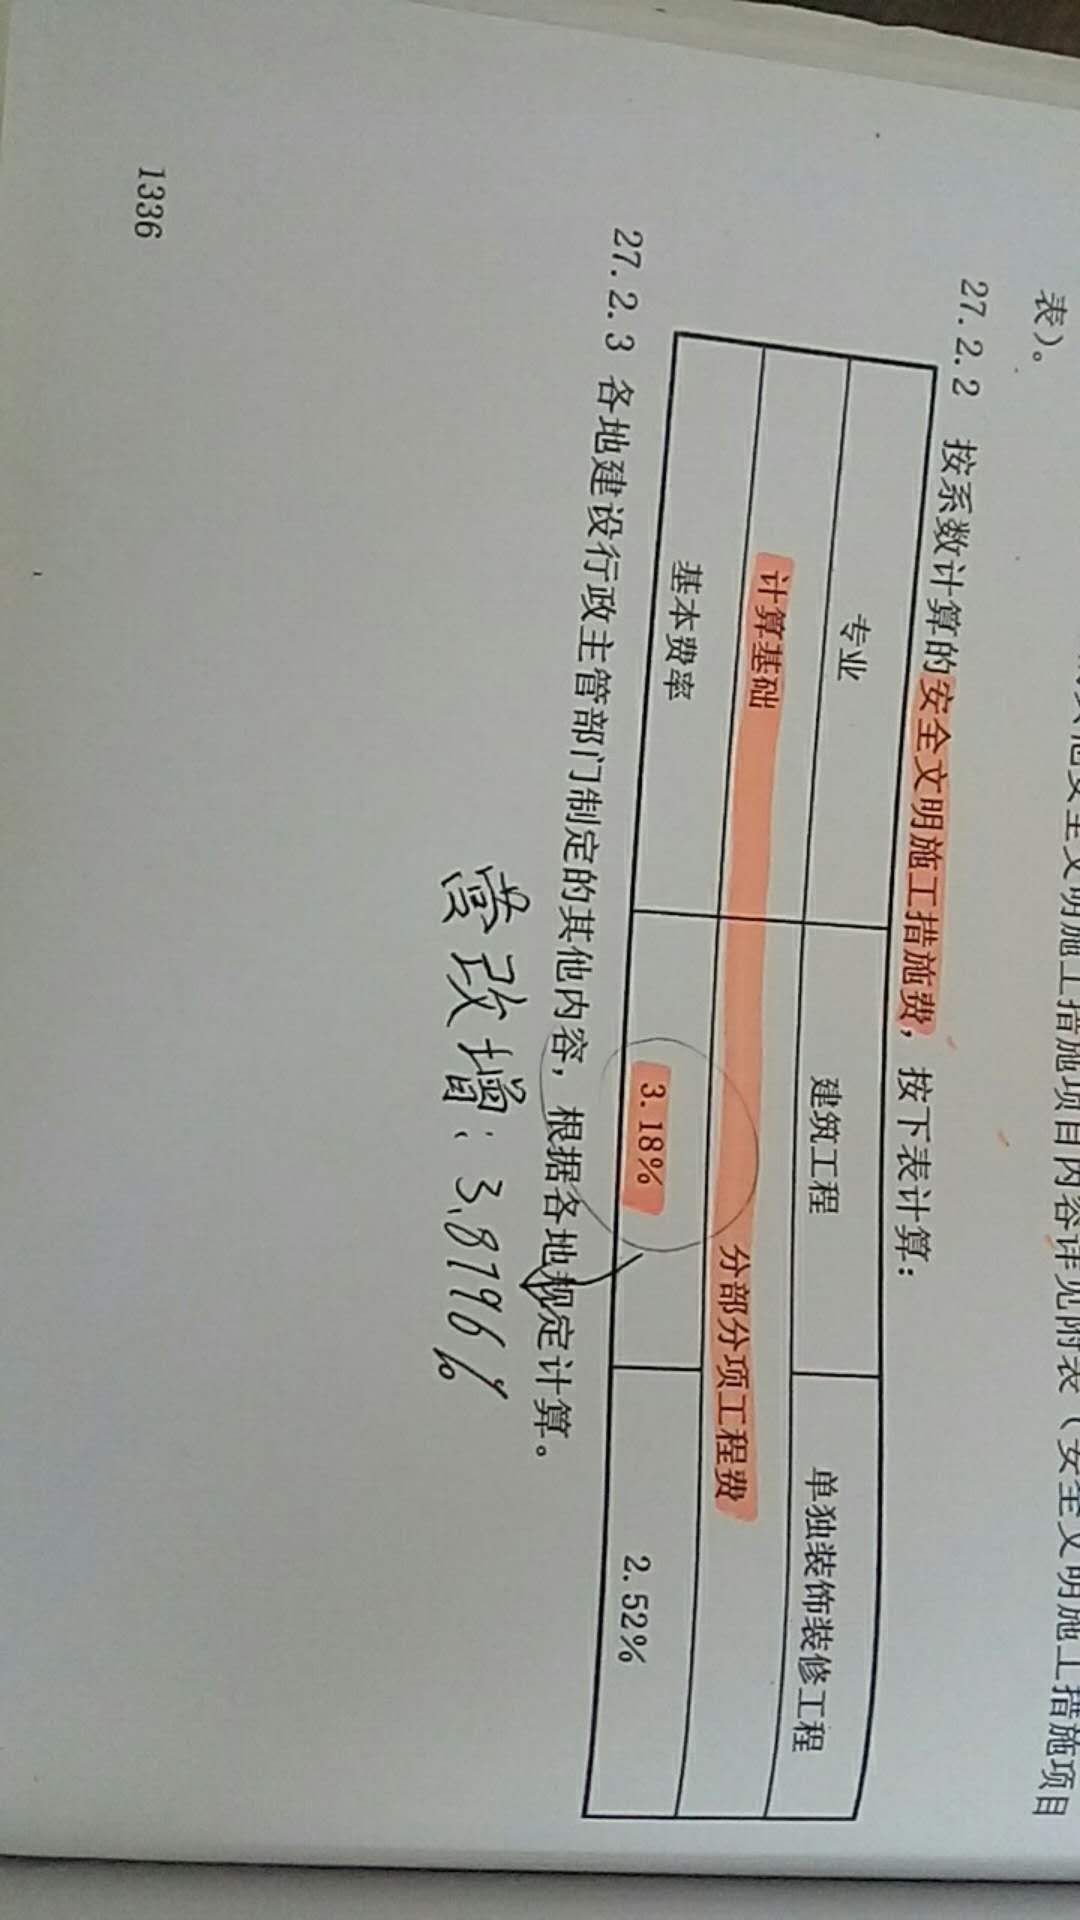 安全文明施工措施项目内容详见附表（安全文明施工措施项目
表）。
27.2.2 按系数计算的安全文明施工措施费，按下表计算：
专业 建筑工程 单独装饰装修工程
计算基础 分部分项工程费
基本费率 3.18% 2.52%
27.2.3 各地建设行政主管部门制定的其他内容，根据各地规定计算。
营改增：3.8796%
1336